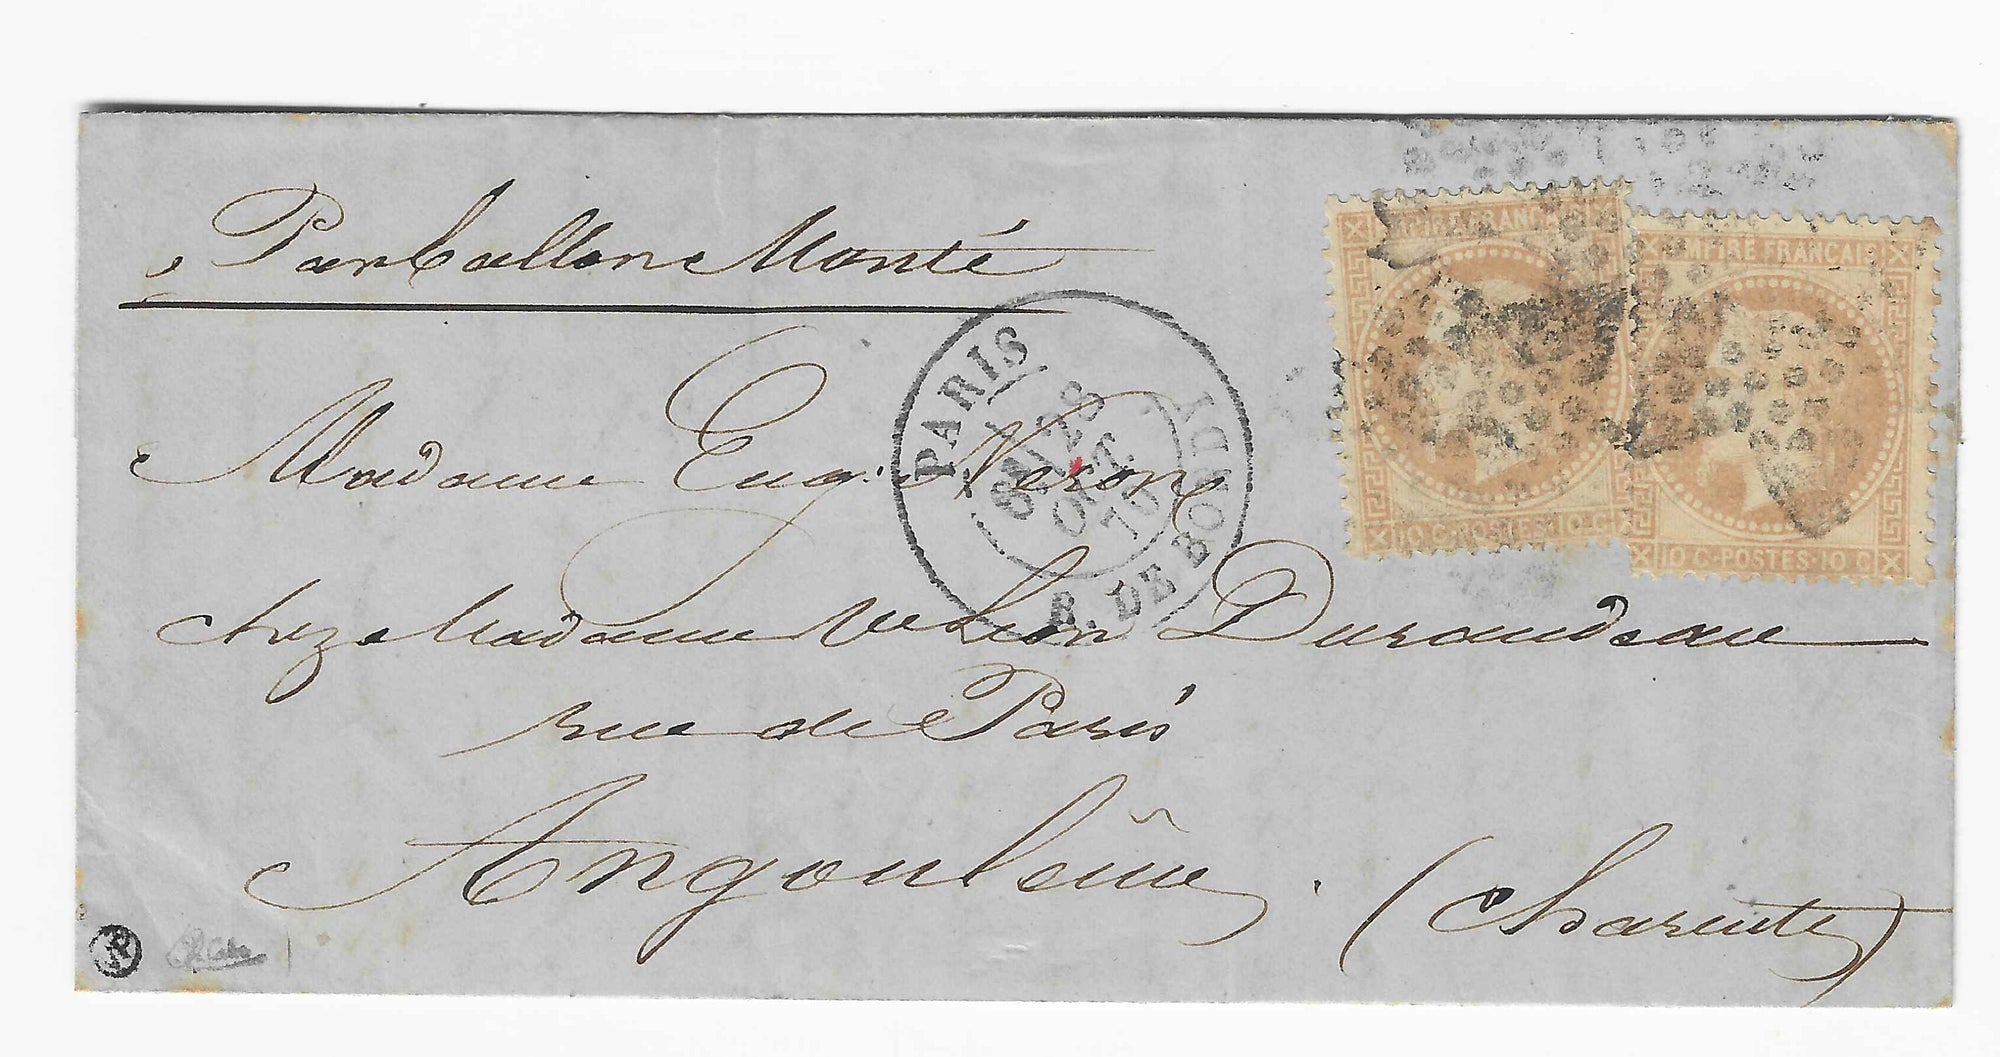 Par ballon Monté
EMPIRE FRANÇAIS
EMPIRE FRANÇAIS
10 C·POSTES·10 C
10 C·POSTES·10 C
PARIS
28
OCT.
70
R. DE BONDY
Madame Eug. Veron
chez Madame Ve Leon Durandeau
rue de Paris
Angoulême. (Charente)